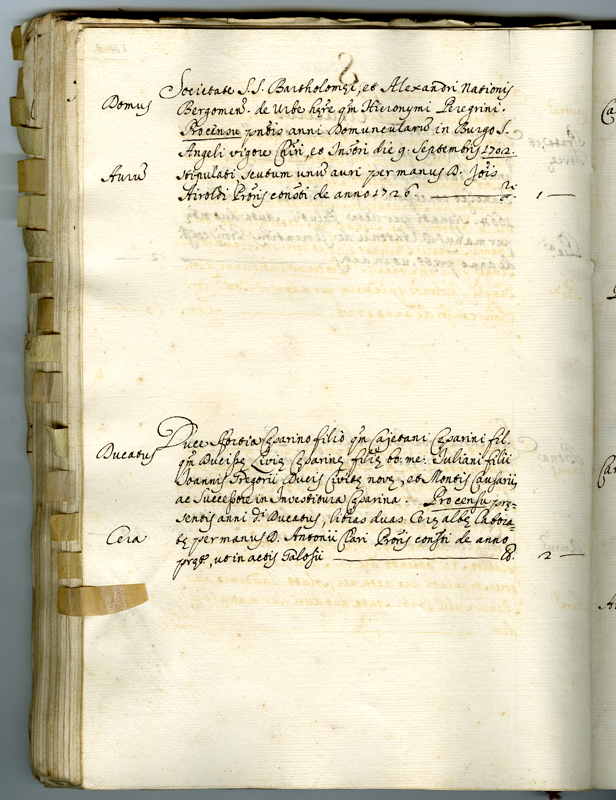 S
Domus
Societate S.S. Bartholomęi, et Alexandri Nationis
Bergomens. de Urbe hęre qm̃ Hieronymi Peregrini.
Pro censu pñtis anni Domuncularũ in Burgo S.
Angeli vigore et die 9. Septembris 1702.
Aurũ
stipulati scutum unũ auri per manus D. Jois
Airoldi de anno 1726
1 —
Ducatus
Duce Sfortia Cęsarino filio qm̃ Cajetani Cęsarini fil.
qm̃ Ducissę Livię Cęsarinę filię bo: me: Juliani filii
Joannis Gregorii Ducis Civitę novę, et Montis Causarii,
ac Successore in Investitura Cęsarina. Pro censu prę-
sentis anni Ducatus, libras duas Cerę albę labora-
Cera
tę per manus D. Antonii Clari de anno
pręt., ut in actis Palosii
2 —